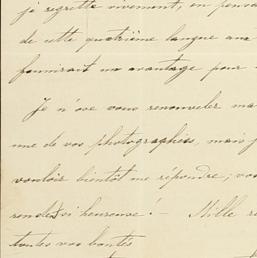 je regrette vivement, en pensa
de cette quatrième langue au
fournirait un avantage pour
Je n'ose vous renouveler ma
une de vos photographies, mais j
vouloir bientôt me répondre; vou
rendez si heureuse! — Mille re
toutes vos bontés